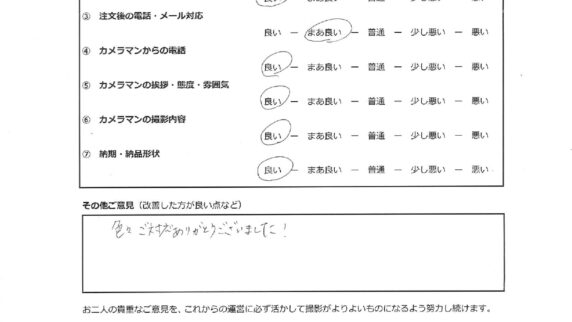 良い
③ 注文後の電話・メール対応
良い － まあ良い － 普通 － 少し悪い － 悪い
④ カメラマンからの電話
良い － まあ良い － 普通 － 少し悪い － 悪い
⑤ カメラマンの挨拶・態度・雰囲気
良い － まあ良い － 普通 － 少し悪い － 悪い
⑥ カメラマンの撮影内容
良い － まあ良い － 普通 － 少し悪い － 悪い
⑦ 納期・納品形状
良い － まあ良い － 普通 － 少し悪い － 悪い
その他ご意見（改善した方が良い点など）
色々ご対応ありがとうございました！
お二人の貴重なご意見を、これからの運営に必ず活かして撮影がよりよいものになるよう努力し続けます。